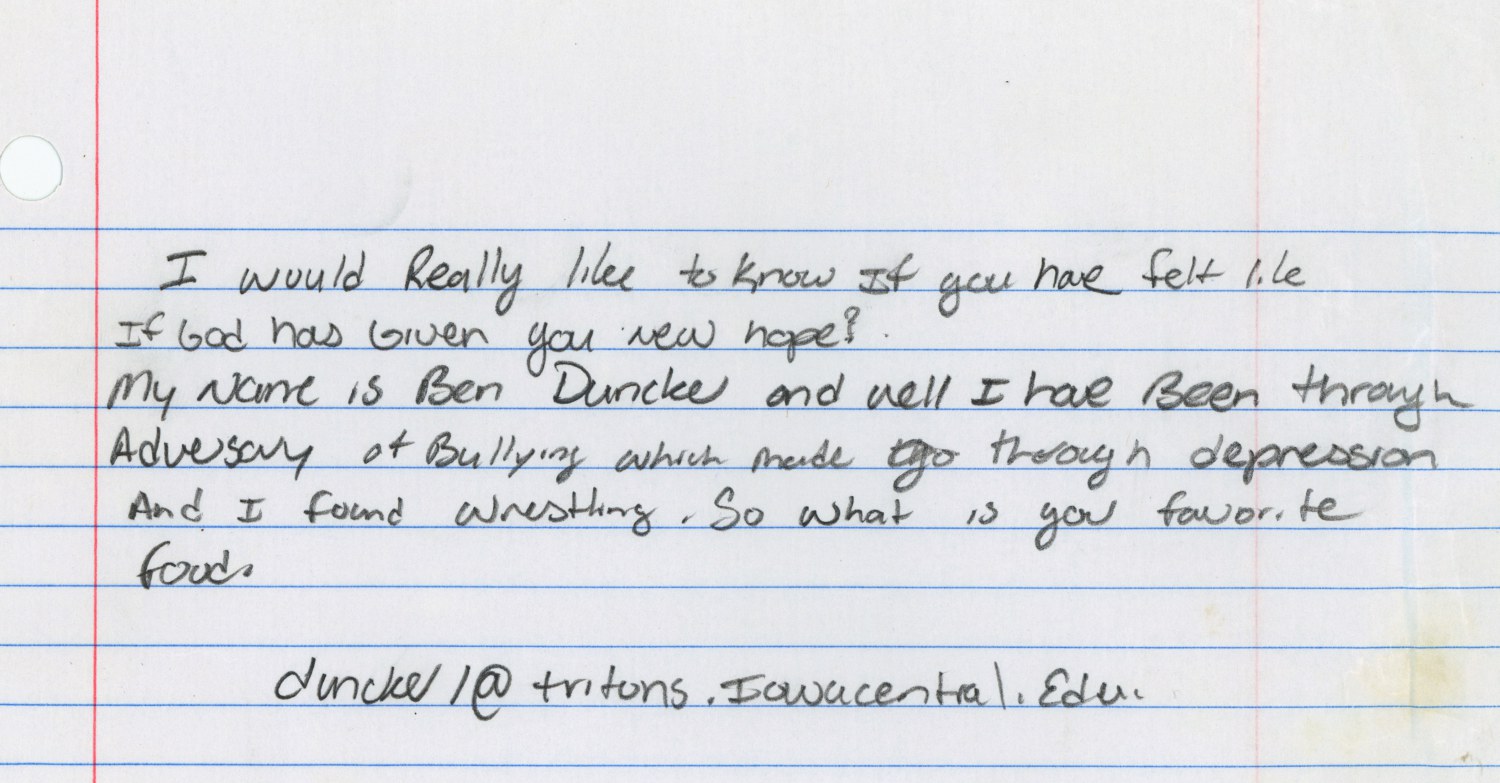 I would Really like to know If you have felt like
If God has Given you new hope?
My Name is Ben Duncker and well I have Been through
Adversary of Bullying which made go through depression
And I found wrestling. So what is you favorite
food.
duncker1@tritons.Iowacentral.Edu.